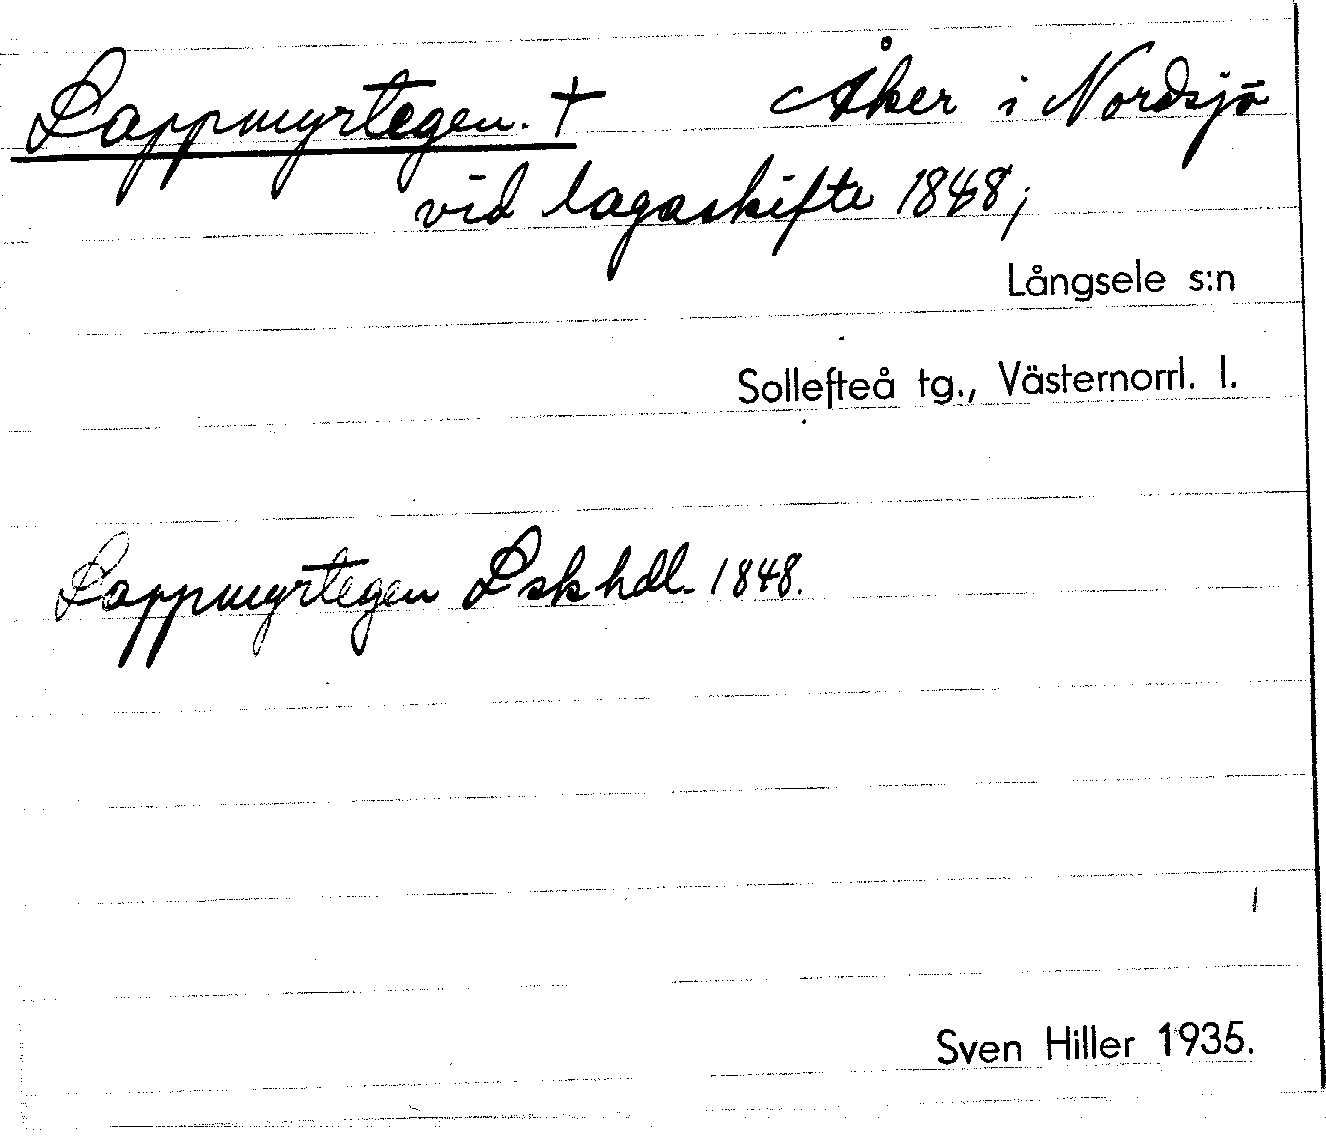 Lappmyrtegen. † Åker i Nordsjö
vid lagaskifte 1848;
Långsele s:n
Sollefteå tg., Västernorrl. l.
Lappmyrtegen Lskhdl. 1848.
Sven Hiller 1935.